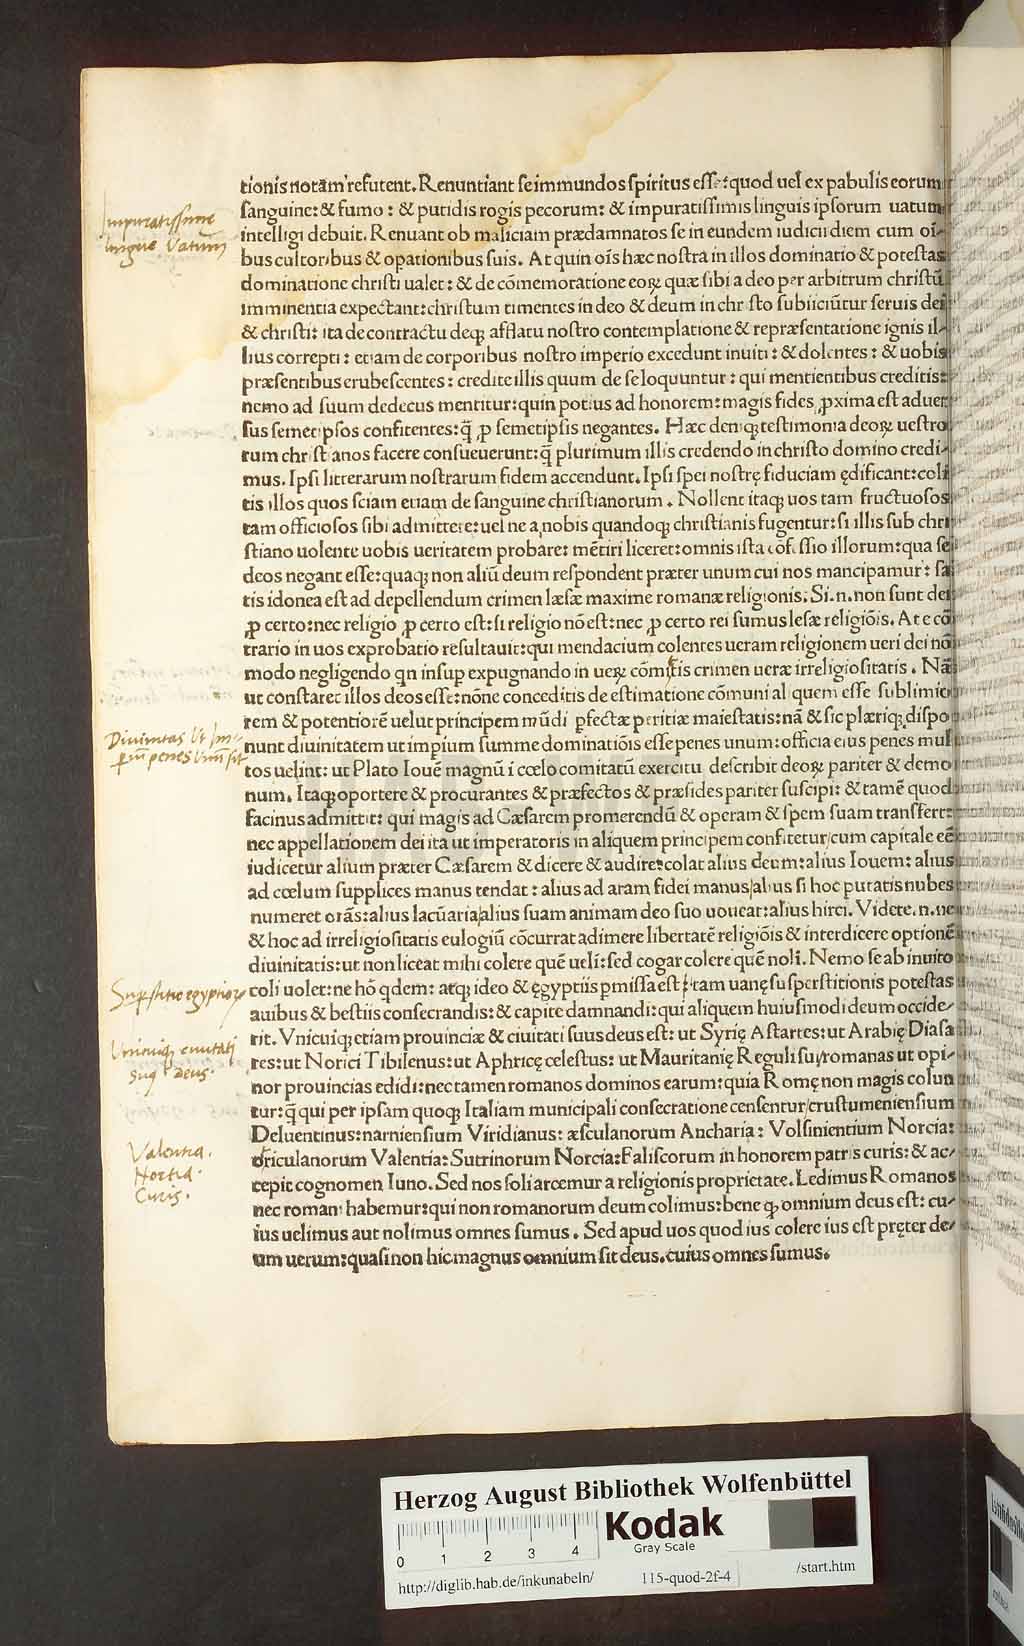 tionis notam refutent. Renuntiant se immundos spiritus esse: quod uel ex pabulis eorum
sanguine: & fumo: & putidis rogis pecorum: & impuratissimis linguis ipsorum uatum
intelligi debuit. Renuant ob maliciam prædamnatos se in eundem iudicii diem cum oī-
bus cultoribus & opationibus suis. At quin oīs hæc nostra in illos dominatio & potestas
dominatione christi ualet: & de cōmemoratione eoꝝ quæ sibi a deo per arbitrum christū
imminentia expectant: christum timentes in deo & deum in christo subiiciūtur seruis dei
& christi: ita de contractu deqꝫ afflatu nostro contemplatione & repræsentatione ignis il-
lius correpti: etiam de corporibus nostro imperio excedunt inuiti: & dolentes: & uobis
præsentibus erubescentes: credite illis quum de se loquuntur: qui mentientibus creditis:
nemo ad suum dedecus mentitur: quin potius ad honorem: magis fides ꝓxima est aduer
sus semetipsos confitentes: q̄ ꝓ semetipsis negantes. Hæc deniqꝫ testimonia deoꝝ uestro
rum christianos facere consueuerunt: q̄ plurimum illis credendo in christo domino credi-
mus. Ipsi litterarum nostrarum fidem accendunt. Ipsi spei nostrę fiduciam ędificant: coli
tis illos quos sciam etiam de sanguine christianorum. Nollent itaqꝫ uos tam fructuosos
tam officiosos sibi admittere: uel ne a nobis quandoqꝫ christianis fugentur: si illis sub chri
stiano uolente uobis ueritatem probare: mētiri liceret: omnis ista cōfessio illorum: qua se
deos negant esse: quaqꝫ non aliū deum respondent præter unum cui nos mancipamur: sa
tis idonea est ad depellendum crimen læsæ maxime romanæ religionis. Si .n. non sunt dei
ꝓ certo: nec religio ꝓ certo est: si religio nō est: nec ꝓ certo rei sumus lesæ religiōis. At e cō
trario in uos exprobatio resultauit: qui mendacium colentes ueram religionem ueri dei nō
modo negligendo qn insup expugnando in ueꝝ cōmitis crimen ueræ irreligiositatis. Nā
ut constaret illos deos esse: nōne conceditis de estimatione cōmuni aliquem esse sublimio
rem & potentiorē uelut principem mūdi pfectæ peritiæ maiestatis: nā & sic plæriqꝫ dispo
nunt diuinitatem ut impium summe dominatiōis esse penes unum: officia eius penes mul
tos uelint: ut Plato Iouē magnū i cœlo comitatū exercitu describit deoꝝ pariter & demo
num. Itaqꝫ oportere & procurantes & præfectos & præsides pariter suscipi: & tamē quod
facinus admittit: qui magis ad Cæsarem promerendū & operam & spem suam transfert:
nec appellationem dei ita ut imperatoris in aliquem principem confitetur/cum capitale eē
iudicetur alium præter Cæsarem & dicere & audire: colat alius deum: alius Iouem: alius
ad cœlum supplices manus tendat: alius ad aram fidei manus/alius si hoc putatis nubes
numeret orās: alius lacūaria/alius suam animam deo suo uoueat: alius hirci. Videte .n. ne
& hoc ad irreligiositatis eulogiū cōcurrat adimere libertatē religiōis & interdicere optionē
diuinitatis: ut non liceat mihi colere quē ueli: sed cogar colere quē noli. Nemo se ab inuito
coli uolet: ne hō qdem: atqꝫ ideo & ęgyptiis pmissa est tam uanę susperstitionis potestas
auibus & bestiis consecrandis: & capite damnandi: qui aliquem huiusmodi deum occide-
rit. Vnicuiqꝫ etiam prouinciæ & ciuitati suus deus est: ut Syrię Astartes: ut Arabię Diasa
res: ut Norici Tibilenus: ut Aphricę celestus: ut Mauritanię Reguli sui/romanas ut opi-
nor prouincias edidi: nec tamen romanos dominos earum: quia Romę non magis colun
tur: q̄ qui per ipsam quoqꝫ Italiam municipali consecratione censentur/crustumeniensium
Deluentinus: narniensium Viridianus: æsculanorum Ancharia: Volsinientium Norcia:
oriculanorum Valentia: Sutrinorum Norcia: Faliscorum in honorem patris curis: & ac-
cepit cognomen Iuno. Sed nos soli arcemur a religionis proprietate. Ledimus Romanos
nec romani habemur: qui non romanorum deum colimus: bene ꝙ omnium deus est: cu-
ius uelimus aut nolimus omnes sumus. Sed apud uos quod ius colere ius est pręter de-
um uerum: quasi non hic magnus omnium sit deus. cuius omnes sumus.
Impuratissime
lingue Vatum
Diuinitas Vt Im-
pīū penes Vnū sit
Supstitio egyptioꝝ
Vnicuiqꝫ ciuitati
suꝯ Deus.
Valentia.
Nortia.
Curis.
Herzog August Bibliothek Wolfenbüttel
Kodak
Gray Scale
0 1 2 3 4
http://diglib.hab.de/inkunabeln/ 115-quod-2f-4 /start.htm
HAB WF